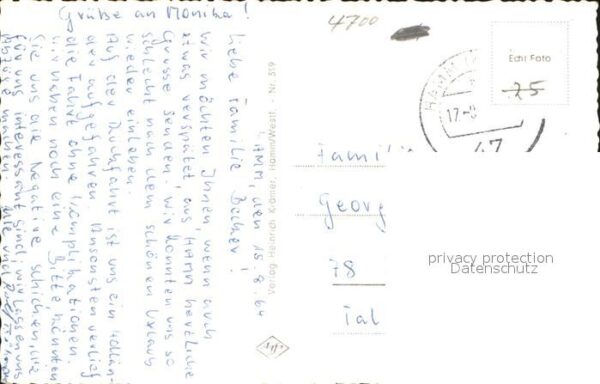 Grüße an Monika!
Hamm, den 15.8.64
Liebe Familie Becker!
Wir möchten Ihnen, wenn auch
etwas verspätet, aus Hamm herzliche
Grüsse senden. Wir konnten uns so
schlecht nach dem schönen Urlaub
wieder einleben.
Auf der Rückfahrt ist uns ein Hollän-
der aufgefahren. Ansonsten verlief
die Fahrt ohne Komplikationen.
Wir haben noch eine Bitte, könnten
Sie uns die Negative schicken, die
für uns interessant sind, wir lassen uns
Abzüge machen
Verlag Heinrich Krämer, Hamm/Westf. - Nr. 319
4700
Echt Foto
25
HAMM
17.-8
47
Famili
Georg
78
Tal
privacy protection
Datenschutz